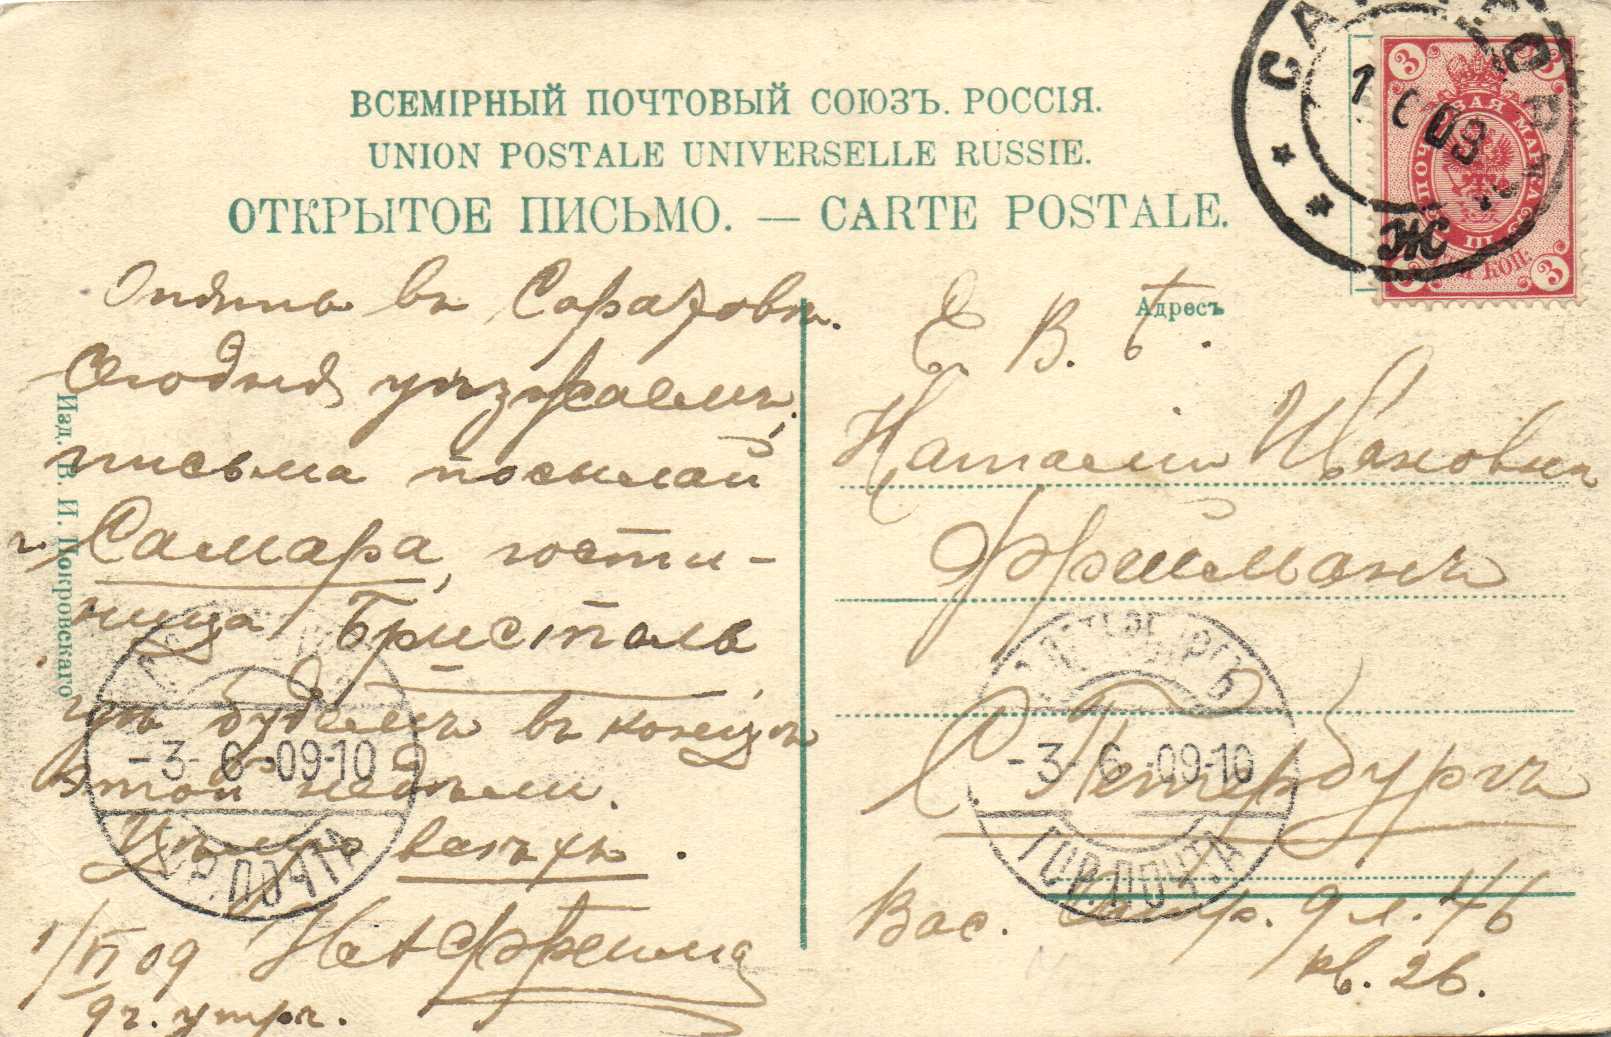 ВСЕМІРНЫЙ ПОЧТОВЫЙ СОЮЗЪ. РОССІЯ.
UNION POSTALE UNIVERSELLE RUSSIE.
ОТКРЫТОЕ ПИСЬМО. — CARTE POSTALE.
Адресъ
Изд. В. И. Покровскаго
Опять въ Саратовѣ.
Сегодня уѣзжаемъ,
письма посылай
г. Самара, гости-
ница Бристоль,
гдѣ будемъ въ концѣ
этой недѣли.
Цѣлую всѣхъ.
1/VI 09
9 ч. утра.
Е. В. Б.
Наталіи Ивановнѣ
Фрейманъ
С. Петербургъ
Вас. Остр. 9 л. 46
кв. 26.
ПОЧТОВАЯ МАРКА
3 3 3 3
КОП.
САРАТОВ
1 6 09
Ж
С.ПЕТЕРБУРГЪ
-3-6-09-10
ГОР.ПОЧТА
-3-6-09-10
ГОР.ПОЧТА